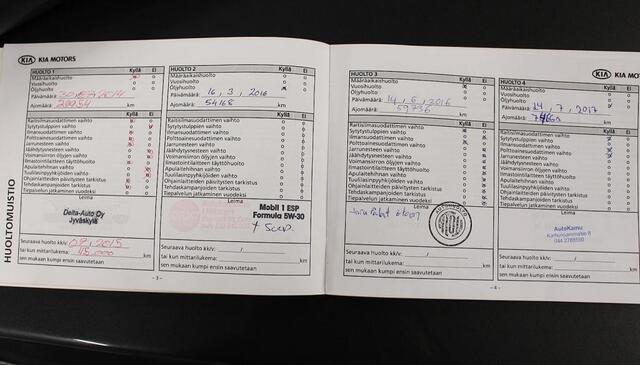 KIA KIA MOTORS
HUOLTO 1 Kyllä Ei
Määräaikaishuolto
Vuosihuolto
Öljyhuolto
Päivämäärä
Ajomäärä: km
Raitisilmasuodattimen vaihto
Sytytystulppien vaihto
Ilmansuodattimen vaihto
Polttoainesuodattimen vaihto
Jarrunesteen vaihto
Jäähdytysnesteen vaihto
Voimansiirron öljyjen vaihto
Ilmastointilaitteen täyttöhuolto
Apulaitehihnan vaihto
Tuulilasinpyyhkijöiden vaihto
Ohjainlaitteiden päivitysten tarkistus
Tehdaskampanjoiden tarkistus
Tiepalvelun jatkaminen vuodeksi
Leima
Delta-Auto Oy
Jyväskylä
Seuraava huolto kk/v: 07, 2015
tai kun mittarilukema: 115.000 km
sen mukaan kumpi ensin saavutetaan
- 3 -
HUOLTOMUISTIO
HUOLTO 2 Kyllä Ei
Määräaikaishuolto
Vuosihuolto
Öljyhuolto
Päivämäärä 16, 3, 2016
Ajomäärä: 54168 km
Raitisilmasuodattimen vaihto
Sytytystulppien vaihto
Ilmansuodattimen vaihto
Polttoainesuodattimen vaihto
Jarrunesteen vaihto
Jäähdytysnesteen vaihto
Voimansiirron öljyjen vaihto
Ilmastointilaitteen täyttöhuolto
Apulaitehihnan vaihto
Tuulilasinpyyhkijöiden vaihto
Ohjainlaitteiden päivitysten tarkistus
Tehdaskampanjoiden tarkistus
Tiepalvelun jatkaminen vuodeksi
Leima
Mobil 1 ESP
Formula 5W-30
Seuraava huolto kk/v: /
tai kun mittarilukema: km
sen mukaan kumpi ensin saavutetaan
KIA KIA MOT
HUOLTO 3 Kyllä Ei
Määräaikaishuolto
Vuosihuolto
Öljyhuolto
Päivämäärä 14, 6, 2016
Ajomäärä: 59736 km
Raitisilmasuodattimen vaihto
Sytytystulppien vaihto
Ilmansuodattimen vaihto
Polttoainesuodattimen vaihto
Jarrunesteen vaihto
Jäähdytysnesteen vaihto
Voimansiirron öljyjen vaihto
Ilmastointilaitteen täyttöhuolto
Apulaitehihnan vaihto
Tuulilasinpyyhkijöiden vaihto
Ohjainlaitteiden päivitysten tarkistus
Tehdaskampanjoiden tarkistus
Tiepalvelun jatkaminen vuodeksi
Leima
Seuraava huolto kk/v: /
tai kun mittarilukema: km
sen mukaan kumpi ensin saavutetaan
- 4 -
HUOLTO 4 Kyllä Ei
Määräaikaishuolto
Vuosihuolto
Öljyhuolto
Päivämäärä 7, 2017
Ajomäärä: km
Raitisilmasuodattimen vaihto
Sytytystulppien vaihto
Ilmansuodattimen vaihto
Polttoainesuodattimen vaihto
Jarrunesteen vaihto
Jäähdytysnesteen vaihto
Voimansiirron öljyjen vaihto
Ilmastointilaitteen täyttöhuolto
Apulaitehihnan vaihto
Tuulilasinpyyhkijöiden vaihto
Ohjainlaitteiden päivitysten tarkistus
Tehdaskampanjoiden tarkistus
Tiepalvelun jatkaminen vuodeksi
Leima
AutoKamu
Seuraava huolto kk/v: /
tai kun mittarilukema:
sen mukaan kumpi ensin saavutetaan